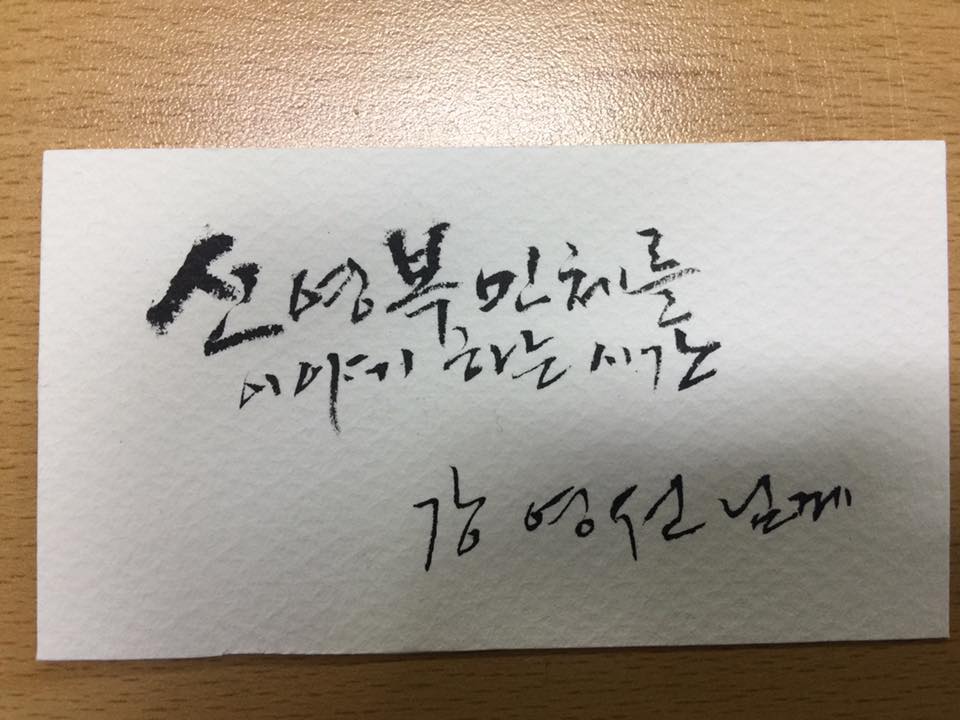 신영복 민체를
이야기 하는 시간
강영선 님께